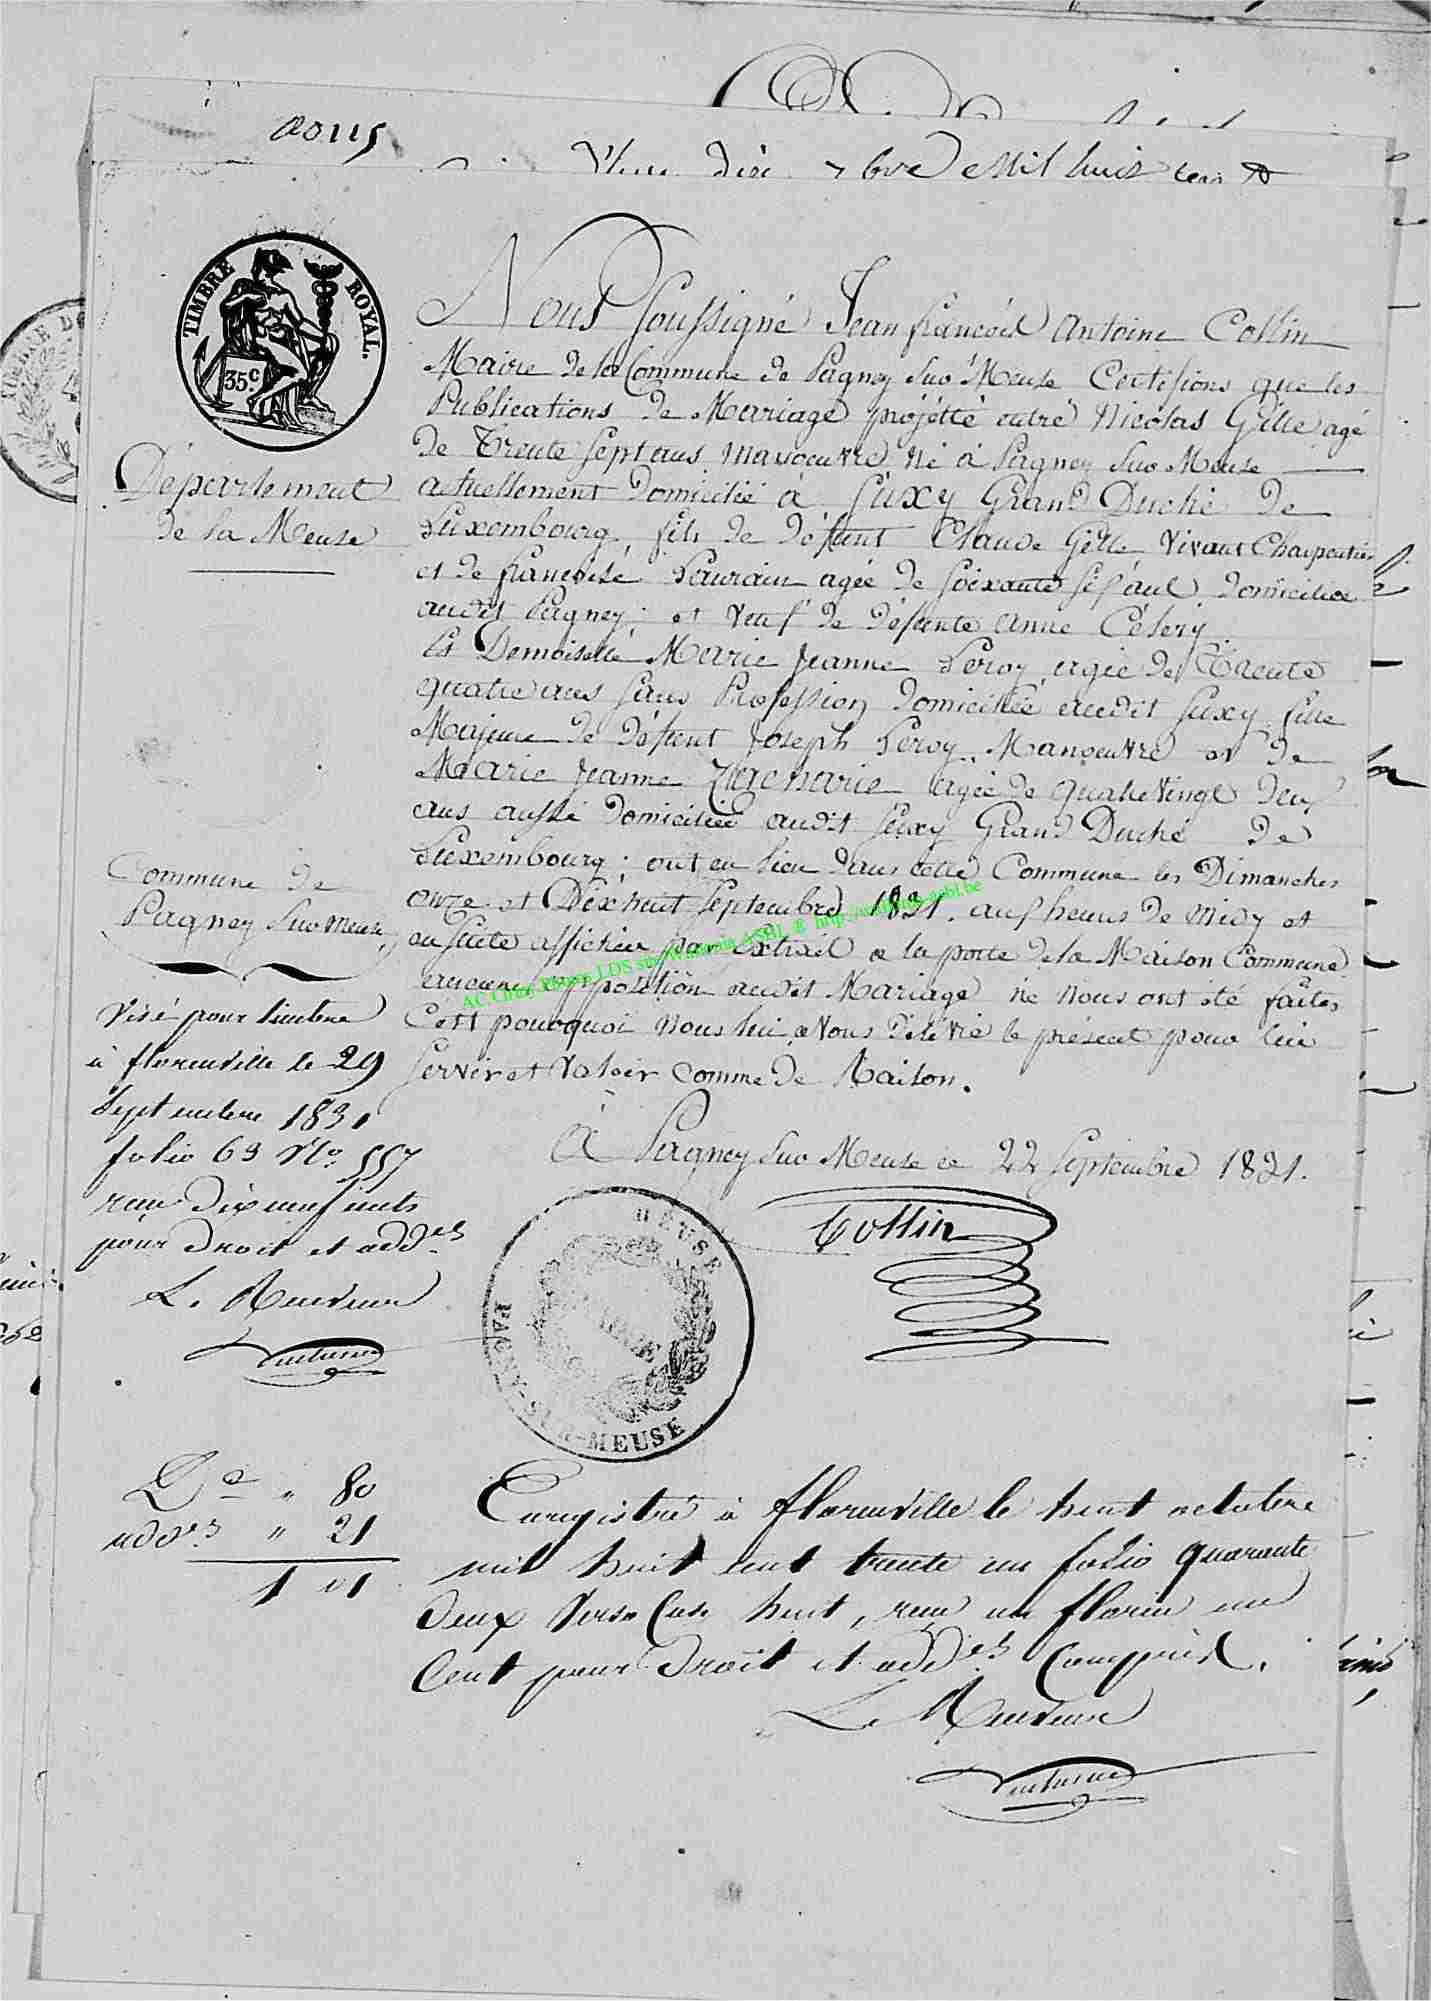 00115
7bre Mil huit cent
TIMBRE ROYAL.
35c
Département
de la Meuse
Commune de
Pagney Sur Meuse
Nous Soussigné Jean françois Antoine Collin
Maire de la Commune de Pagney Sur Meuse Certifions que les
Publications de Mariage projétté entre Nicolas Gille agé
de Trente Sept ans Manoeuvre né à Pagney Sur Meuse
actuellement Domicilié à Suxy Grand Duché de
Luxembourg, fils de défunt Claude Gille Vivant Charpentier
et de françoise agée de Soixante ans Domiciliée
audit Pagney; et Veuf de défunte Anne Célery
Et Demoiselle Marie Jeanne Leroy, agée de Trente
quatre ans Sans Profession Domiciliée audit Suxy fille
Majeure de défunt Joseph Leroy, Manoeuvre et de
Marie Jeanne Zacharie agée de quatre Vingt deux
ans aussi Domiciliée audit Suxy Grand Duché de
Luxembourg; ont eu lieu dans cette Commune les Dimanches
onze et Dixhuit Septembre 1831. aux heures de Midy et
ensuite affichées par Extrait a la porte de la Maison Commune
aucune opposition audit Mariage ne Nous ont été faites
C'est pourquoi Nous lui avons Délivré le présent pour lui
Servir et Valoir comme de Raison.
à Pagney Sur Meuse ce 22 Septembre 1831.
Collin
AC Chiny Photos LDS site Wallonia ASBL
Visé pour timbre
à florenville le 29
Septembre 1831
folio 69 No 557
reçu Dix neuf cents
pour Droit et addels
Le Receveur
MEUSE
MAIRIE
PAGNY-SUR-MEUSE
Dt " 80
addels " 21
1 01
Enregistré à florenville le huit octobre
mil huit cent trente un folio quarante
deux Verso Case huit, reçu un florin un
Cent pour Droit et addels Compris.
Le Receveur